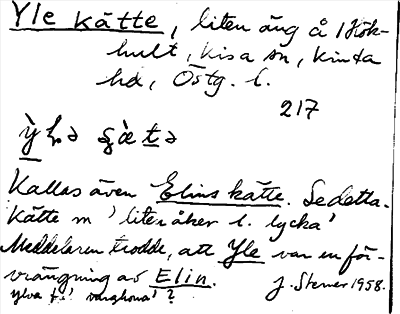 Yle kätte, liten äng å Hök-
hult, Kisa sn, Kinda
hd, Östg. l.
217
Kallas även Elins kätte. Se detta.
Kätte m 'liten åker l. lycka'
Meddelaren trodde, att Yle var en för-
vrängning av Elin. J. Sterner 1958.
Ylva f.' varghona' ?